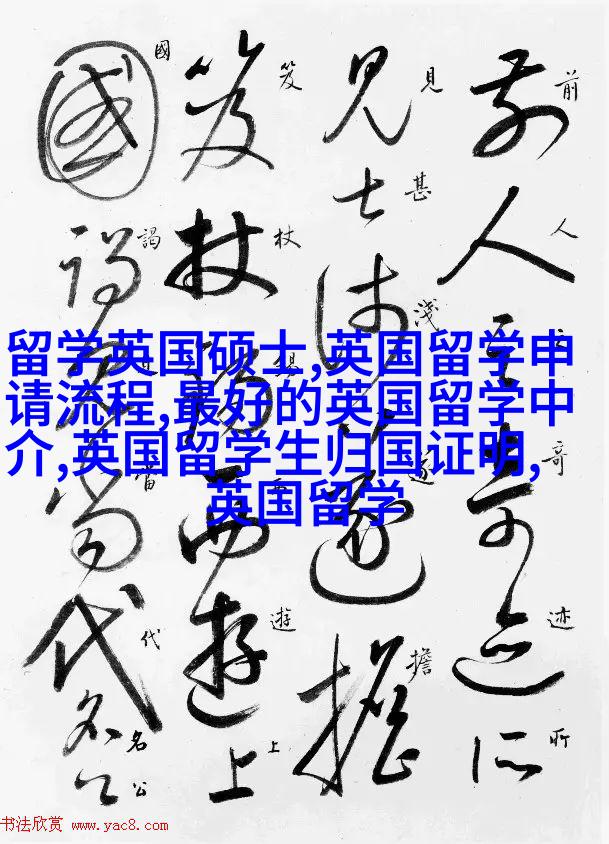 前人之奇迹所
見甚淺遂擔
笈杖錫西遊上
國謁見當代名公
留学英国硕士,英国留学申
请流程,最好的英国留学中
介,英国留学生归国证明,
英国留学
书法欣赏 www.yac8.com